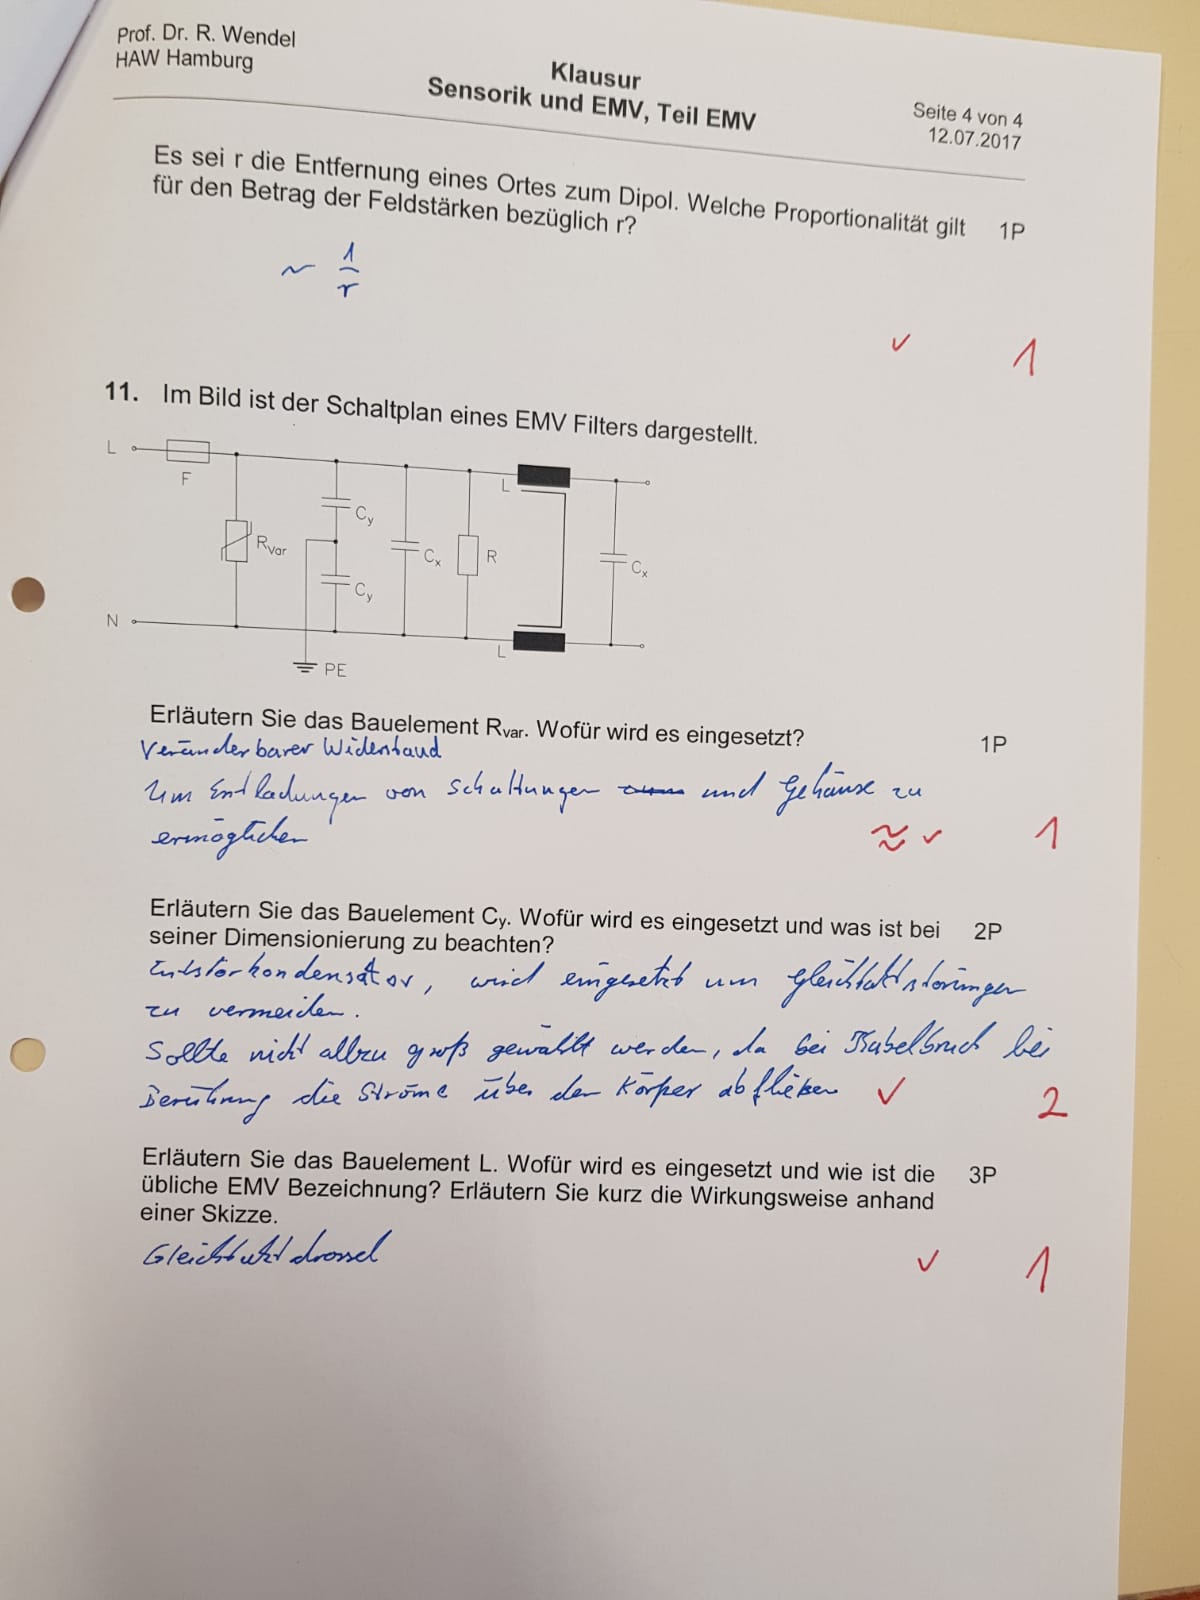 Prof. Dr. R. Wendel
HAW Hamburg
Klausur
Sensorik und EMV, Teil EMV
Seite 4 von 4
12.07.2017
Es sei r die Entfernung eines Ortes zum Dipol. Welche Proportionalität gilt 1P
für den Betrag der Feldstärken bezüglich r?
~ 1/r
✓ 1
11. Im Bild ist der Schaltplan eines EMV Filters dargestellt.
L
F
Rvar
Cy
Cy
Cx
R
L
L
Cx
N
PE
Erläutern Sie das Bauelement Rvar. Wofür wird es eingesetzt? 1P
Veränderbarer Widerstand
Um Entladungen von Schaltungen und Gehäuse zu
ermöglichen
≈ ✓ 1
Erläutern Sie das Bauelement Cy. Wofür wird es eingesetzt und was ist bei 2P
seiner Dimensionierung zu beachten?
Entstörkondensator, wird eingesetzt um Gleichtaktstörungen
zu vermeiden.
Sollte nicht allzu groß gewählt werden, da bei Kabelbruch bei
Berührung die Ströme über den Körper abfließen ✓ 2
Erläutern Sie das Bauelement L. Wofür wird es eingesetzt und wie ist die 3P
übliche EMV Bezeichnung? Erläutern Sie kurz die Wirkungsweise anhand
einer Skizze.
Gleichtaktdrossel
✓ 1